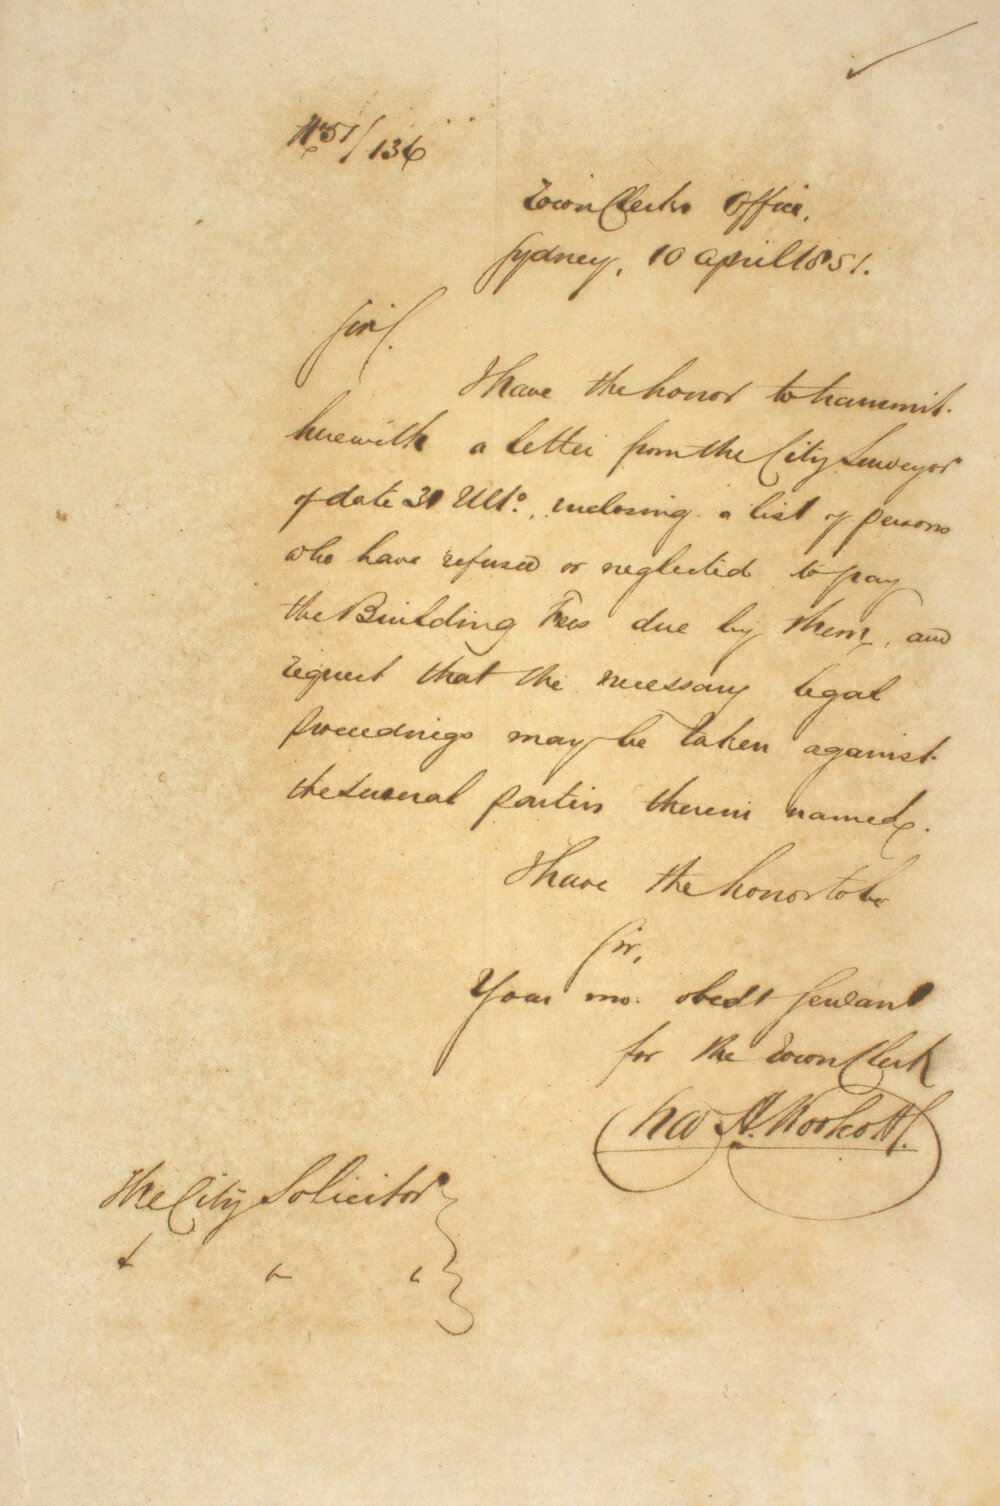 No 51/136
Town Clerks Office,
Sydney, 10 April 1851.
Sir,
I have the honor to transmit
herewith a letter from the City Surveyor
of date 31 Ulto., inclosing a list of persons
who have refused or neglected to pay
the Building Fees due by them, and
request that the necessary legal
proceedings may be taken against
the several parties therein named.
I have the honor to be
Sir,
Your mo. obedt Servant
for the Town Clerk
Chas H. Woolcott
The City Solicitor